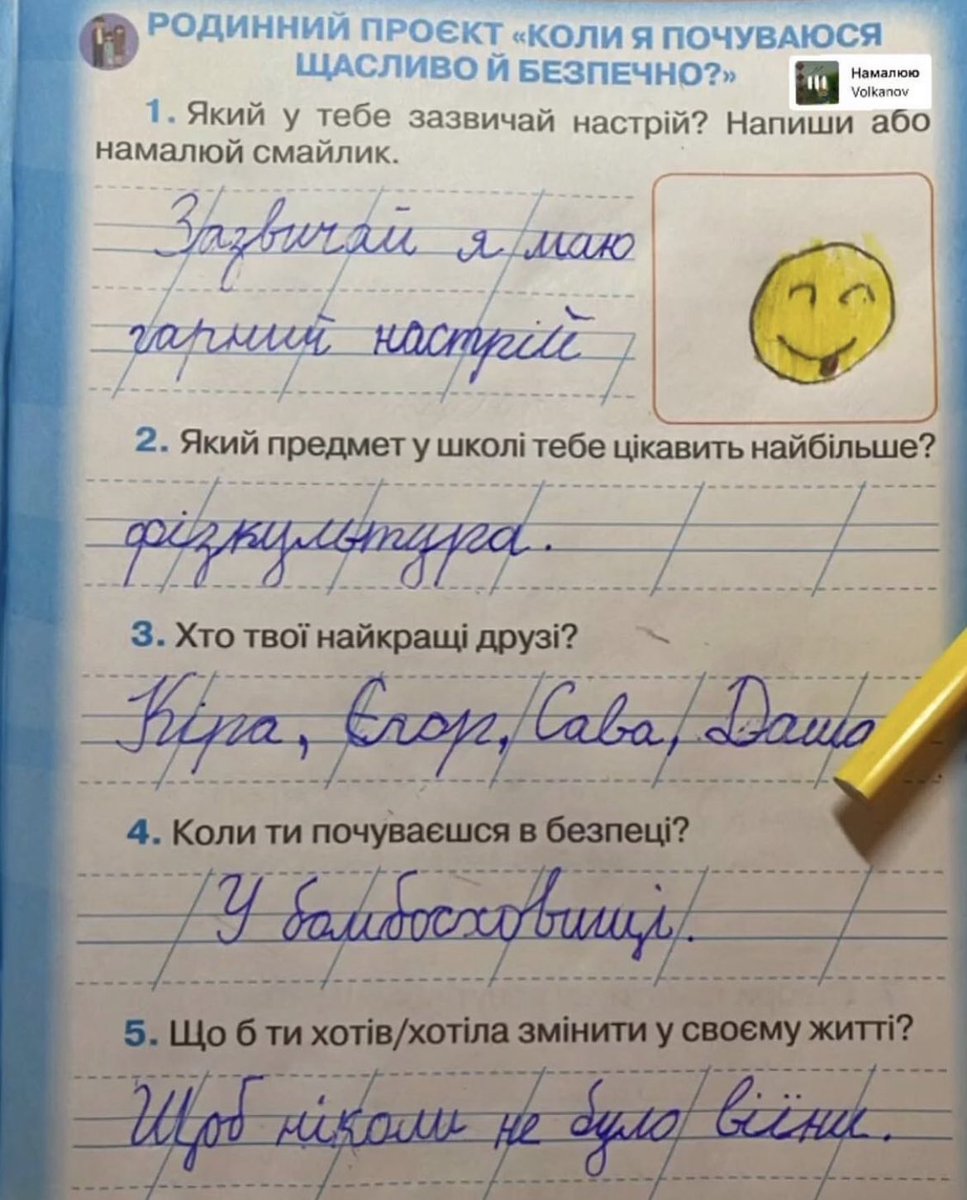 РОДИННИЙ ПРОЄКТ «КОЛИ Я ПОЧУВАЮСЯ
ЩАСЛИВО Й БЕЗПЕЧНО?»
Намалюю
Volkanov
1. Який у тебе зазвичай настрій? Напиши або
намалюй смайлик.
Зазвичай я маю
гарний настрій
2. Який предмет у школі тебе цікавить найбільше?
фізкультура.
3. Хто твої найкращі друзі?
Кіра, Єгор, Сава, Даша
4. Коли ти почуваєшся в безпеці?
У бомбосховищі.
5. Що б ти хотів/хотіла змінити у своєму житті?
Щоб ніколи не було війни.